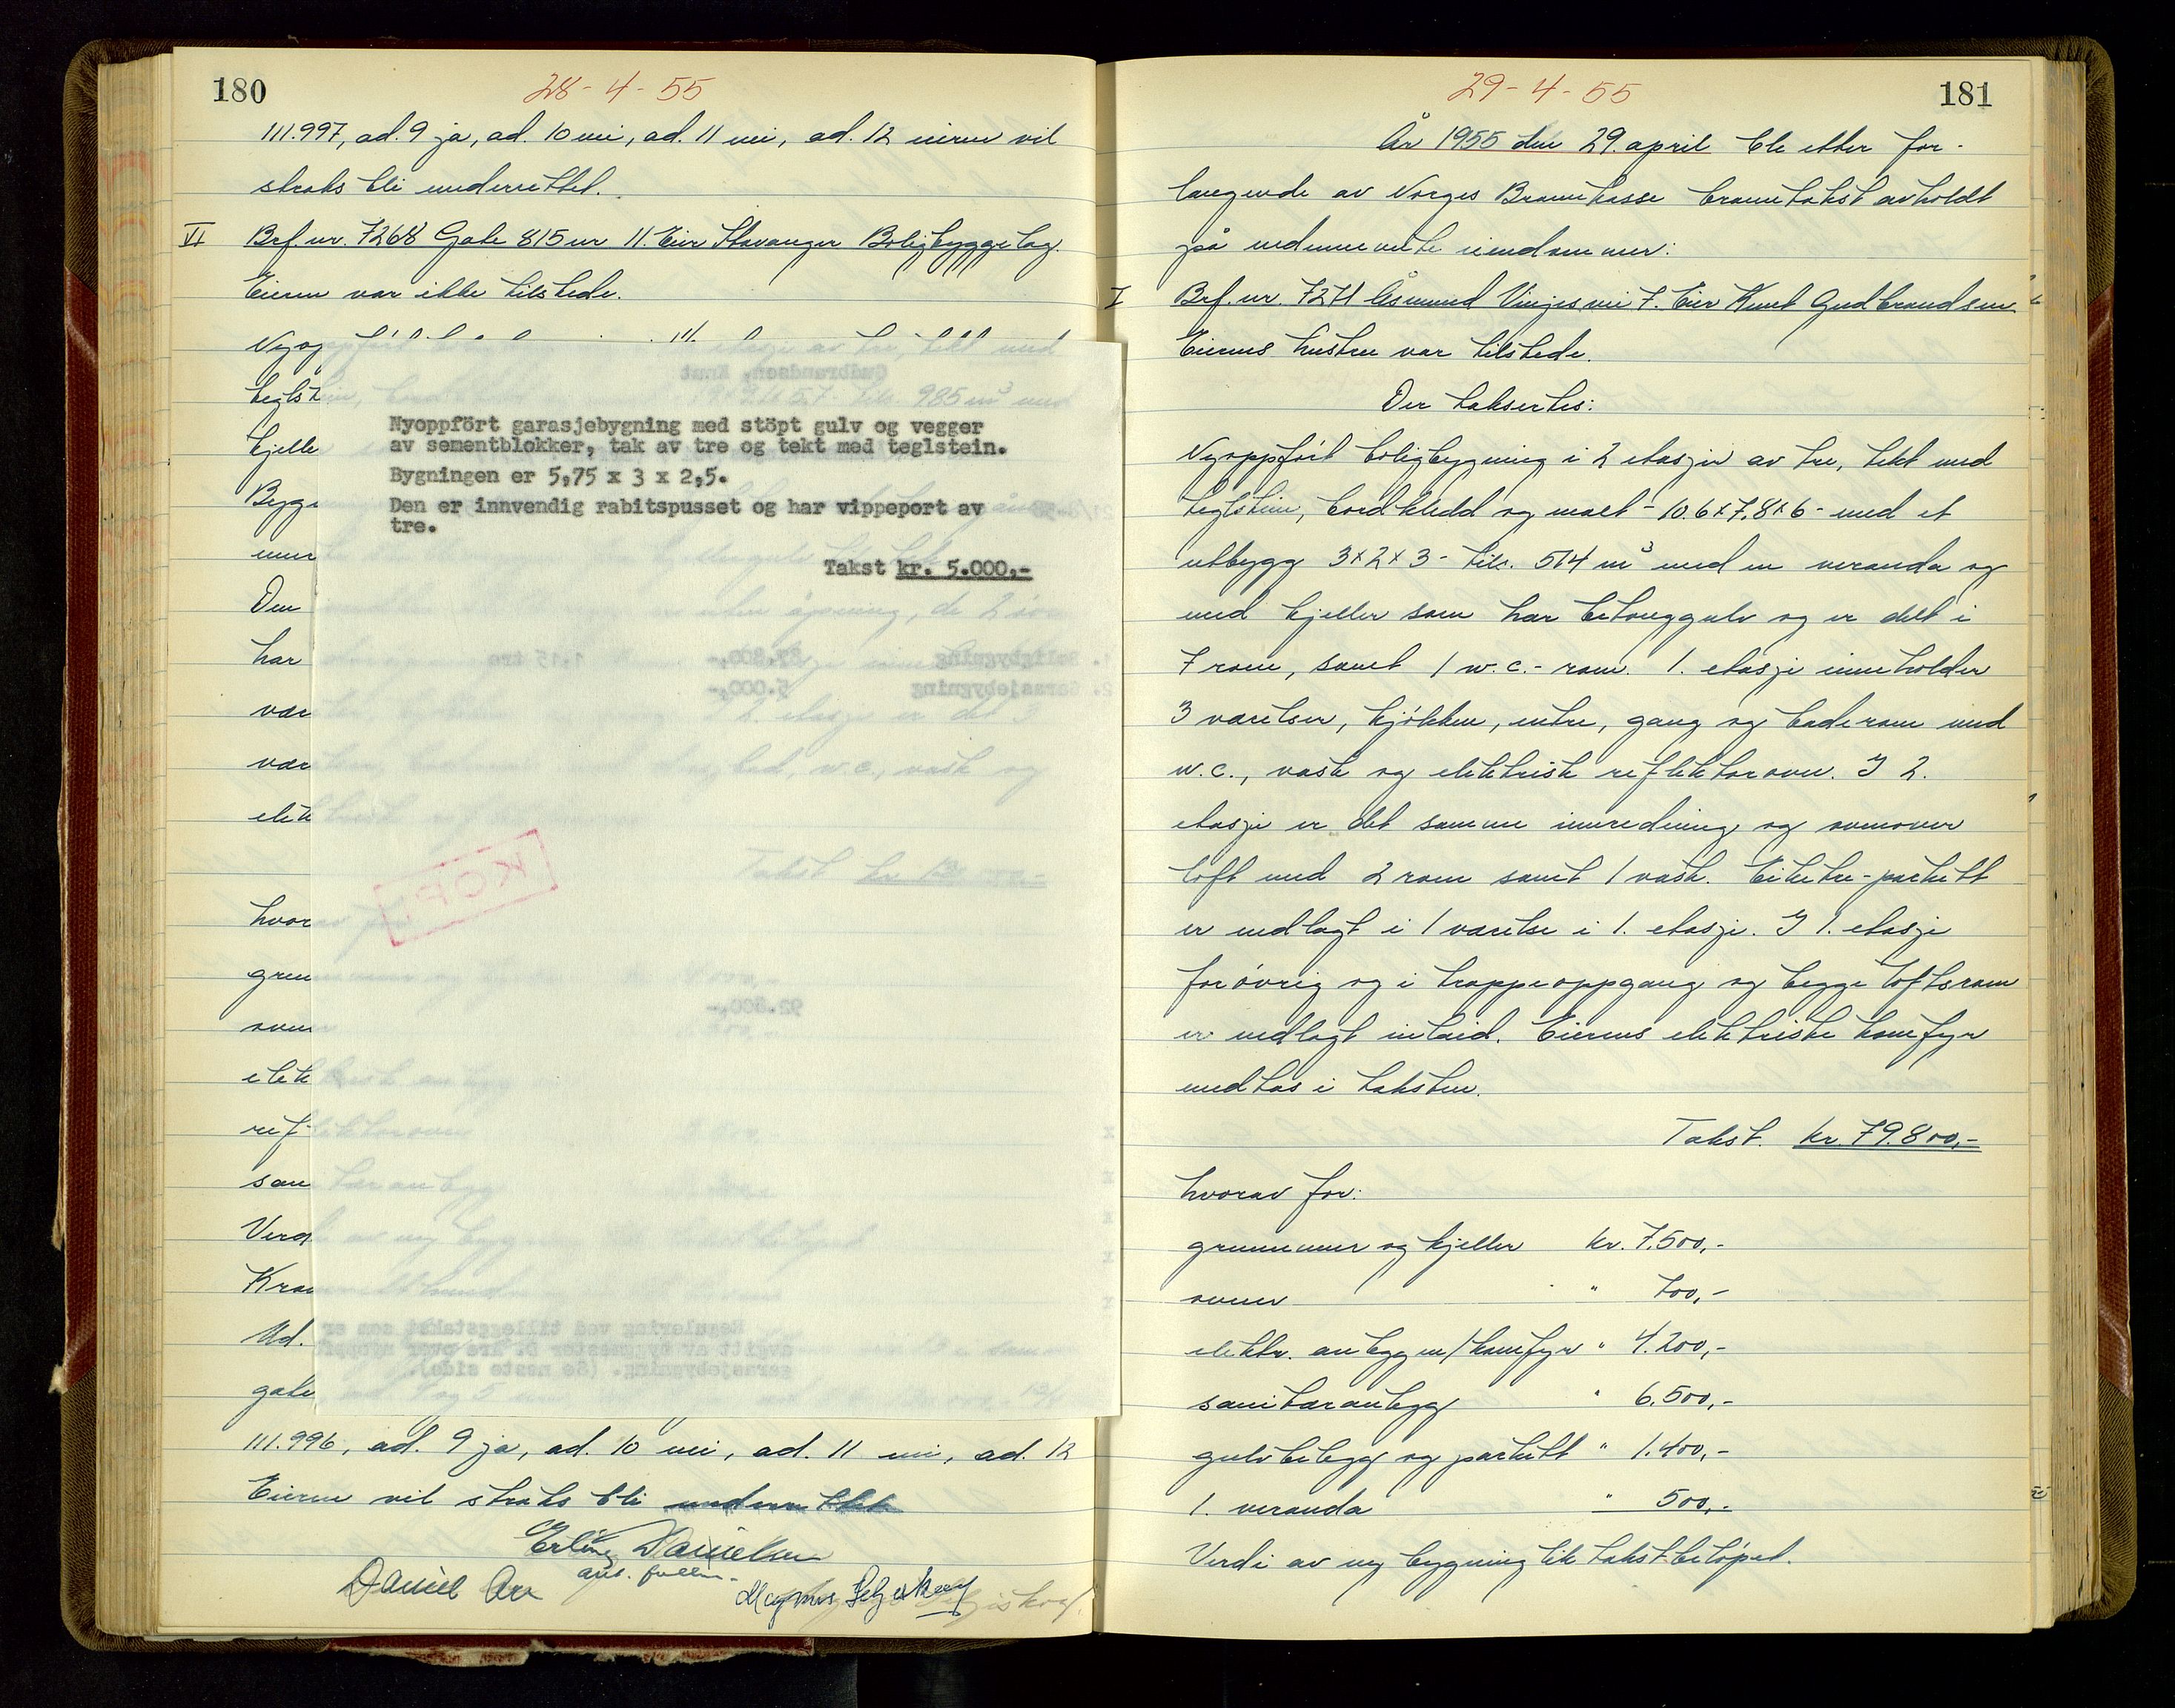 180
28-4-55
111.997, ad. 9 ja, ad. 10 nei, ad. 11 nei, ad. 12 eieren vil
straks bli underrettet.
VI Brf. nr. 7268 Gate 815 nr 11. Eier Stavanger Boligbyggelag.
Eieren var ikke tilstede.
Nyopp
teglst
kjelle
Bygg
mur
Den
har
vær
vær
elek
hvor
grun
ovne
elek
ref
san
Verd
Kran
Ad.
gate
Nyoppfört garasjebygning med stöpt gulv og vegger
av sementblokker, tak av tre og tekt med teglstein.
Bygningen er 5,75 x 3 x 2,5.
Den er innvendig rabitspusset og har vippeport av
tre.
Takst kr. 5.000,-
111.996, ad. 9 ja, ad. 10 nei, ad. 11 nei, ad. 12
Eieren vil straks bli underrettet
Erling Danielsen
Daniel Are
181
29-4-55
År 1955 den 29. april ble etter for-
langende av Norges Brannkasse branntakst avholdt
på nedennevnte eiendommer:
I Brf. nr. 7271 Åsmund Vinjes vei 7. Eier Knut Gudbrandsen
Eierens hustru var tilstede.
Der taksertes:
Nyoppført boligbygning i 2 etasjer av tre, tekt med
teglstein, bordkledd og malt - 10.6 x 7.8 x 6 - med et
utbygg 3 x 2 x 3 - tils. 514 m³ med en veranda og
med kjeller som har betonggulv og er delt i
7 rom, samt 1 w.c.-rom. 1. etasje inneholder
3 værelser, kjøkken, entre, gang og baderom med
w.c., vask og elektrisk reflektorovn. I 2.
etasje er det samme innredning og ovenover
loft med 2 rom samt 1 vask. Eiketre-parkett
er nedlagt i 1 værelse i 1. etasje. I 1. etasje
forøvrig og i trappeoppgang og begge loftsrom
er nedlagt inlaid. Eierens elektriske komfyr
medtas i taksten.
Takst. kr. 79.800,-
hvorav for:
grunnmur og kjeller kr. 7.500,-
ovner " 700,-
elektr. anlegg m/komfyr " 4.200,-
sanitæranlegg " 6.500,-
gulvbelegg og parkett " 1.400,-
1. veranda " 500,-
Verdi av ny bygning lik takstbeløpet.